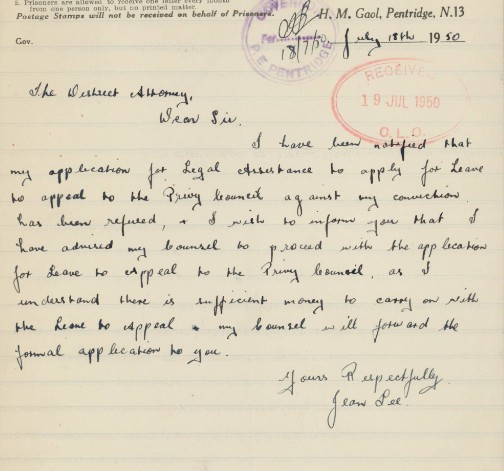 5. Prisoners are allowed to receive one letter every month
from one person only, but no printed matter.
Postage Stamps will not be received on behalf of Prisoners.
H. M. Gaol, Pentridge, N.13
GOVERNOR
Per
18/7/50
P.E. PENTRIDGE
Gov.
July 18th 1950
RECEIVED
19 JUL 1950
C. L. O.
The District Attorney,
Dear Sir.
I have been notified that
my application for Legal Assistance to apply for Leave
to appeal to the Privy Council against my conviction
has been refused, + I wish to inform you that I
have advised my Counsel to proceed with the application
for Leave to Appeal to the Privy Council, as I
understand there is sufficient money to carry on with
the Leave to Appeal + my Counsel will forward the
formal application to you.
Yours Respectfully.
Jean Lee.